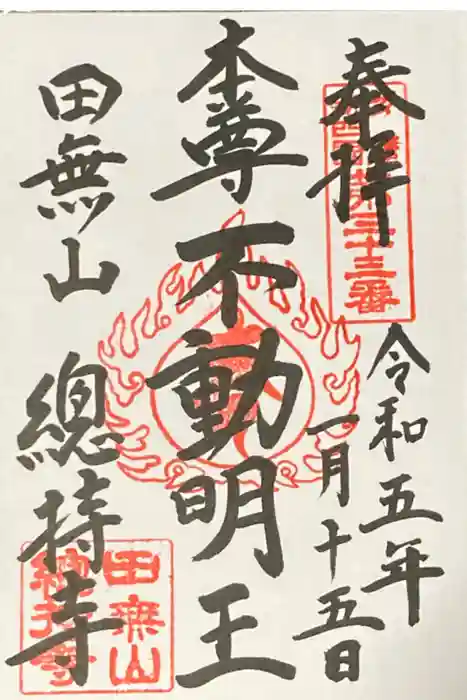 奉拝
第三十三番
令和五年
一月十五日
本尊 不動明王
田無山 總持寺
田無山
總持寺